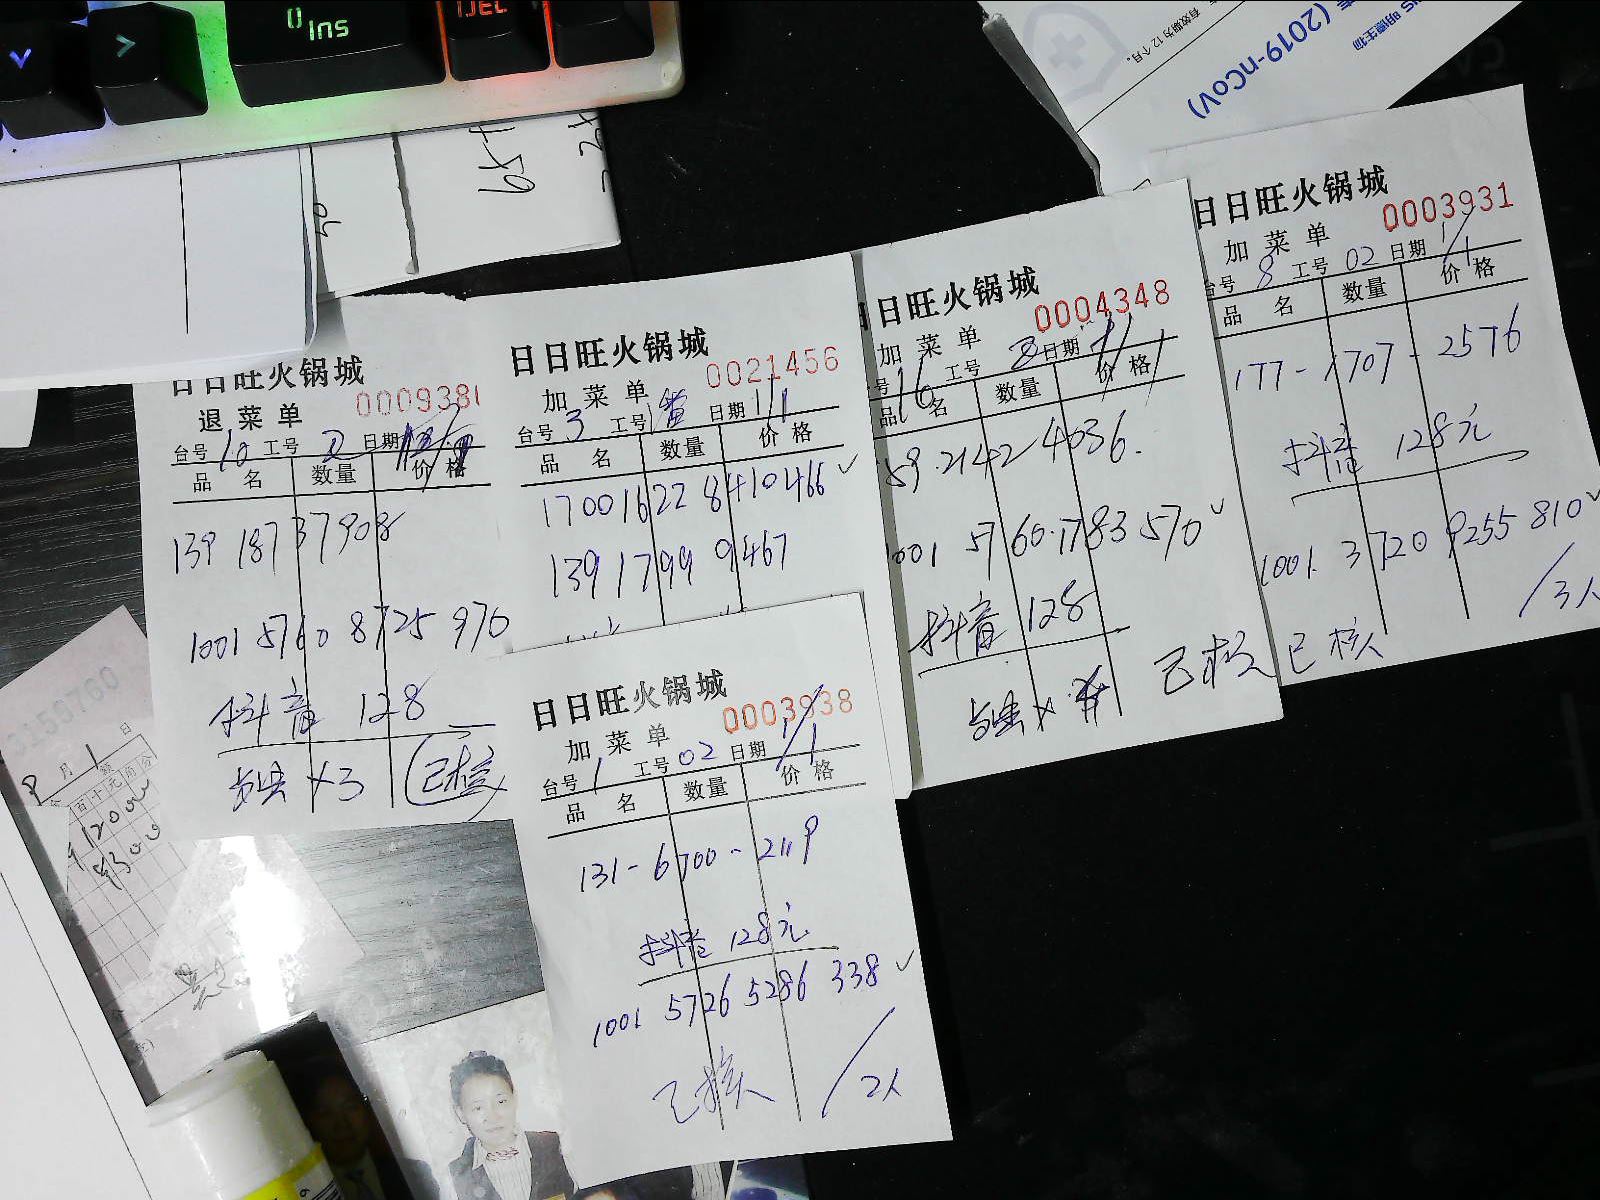 Ins
(2019-nCoV)
明德生物
有效期为12个月。
日日旺火锅城
退菜单 000938
台号 10 工号 2 日期
品名 数量 价格
139 187 37908
1001 5760 8725 976
抖音 128
×3 已核
日日旺火锅城
加菜单 0021456
台号 3 工号 日期 1/1
品名 数量 价格
17001622 8410466 ✓
139 1799 9467
日日旺火锅城
加菜单 0004348
号 16 工号 2 日期 1/1
品名 数量 价格
59.2142 4036.
001 5760.1783 570 ✓
抖音 128
已核
日日旺火锅城
加菜单 0003931
台号 8 工号 02 日期 1/1
品名 数量 价格
177-1707-2576
抖音 128元
1001. 3720 9255 810 ✓
/3人
已核
日日旺火锅城
加菜单 0003938
台号 1 工号 02 日期 1/1
品名 数量 价格
131-6700-2119
抖音 128元
1001 5726 5286 338 ✓
已核 /2人
月 1 日